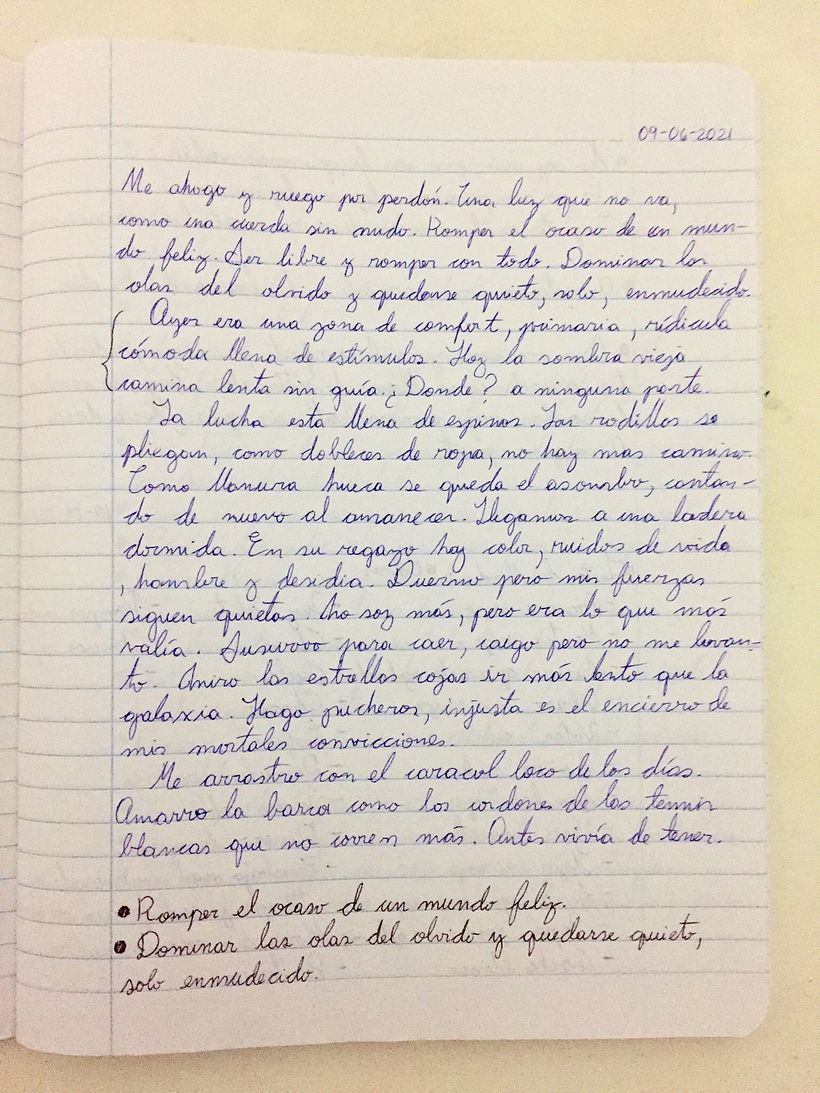 09-06-2021
Me ahogo y ruego por perdón. Una luz que no va,
como una cuerda sin nudo. Romper el ocaso de un mun-
do feliz. Ser libre y romper con todo. Dominar las
olas del olvido y quedarse quieto, solo, enmudecido.
Ayer era una zona de comfort, primaria, rídicula
cómoda llena de estímulos. Hoy la sombra vieja
camina lenta sin guía. ¿Donde? a ninguna parte.
La lucha esta llena de espinas. Las rodillas se
pliegan, como dobleces de ropa, no hay mas camino
Como llanura hueca se queda el asombro, cantan-
do de nuevo al amanecer. Llegamos a una ladera
dormida. En su regazo hay color, ruidos de vida
, hambre y desidia. Duermo pero mis fuerzas
siguen quietas. No soy más, pero era lo que más
valía. Susurro para caer, caigo pero no me levan-
to. Miro las estrellas cojas ir más lento que la
galaxia. Hago pucheros, injusta es el encierro de
mis mortales convicciones.
Me arrastro con el caracol loco de los días.
Amarro la barca como los cordones de los tennis
blancas que no corren más. Antes vivía de tener.
• Romper el ocaso de un mundo feliz.
• Dominar las olas del olvido y quedarse quieto,
solo enmudecido.